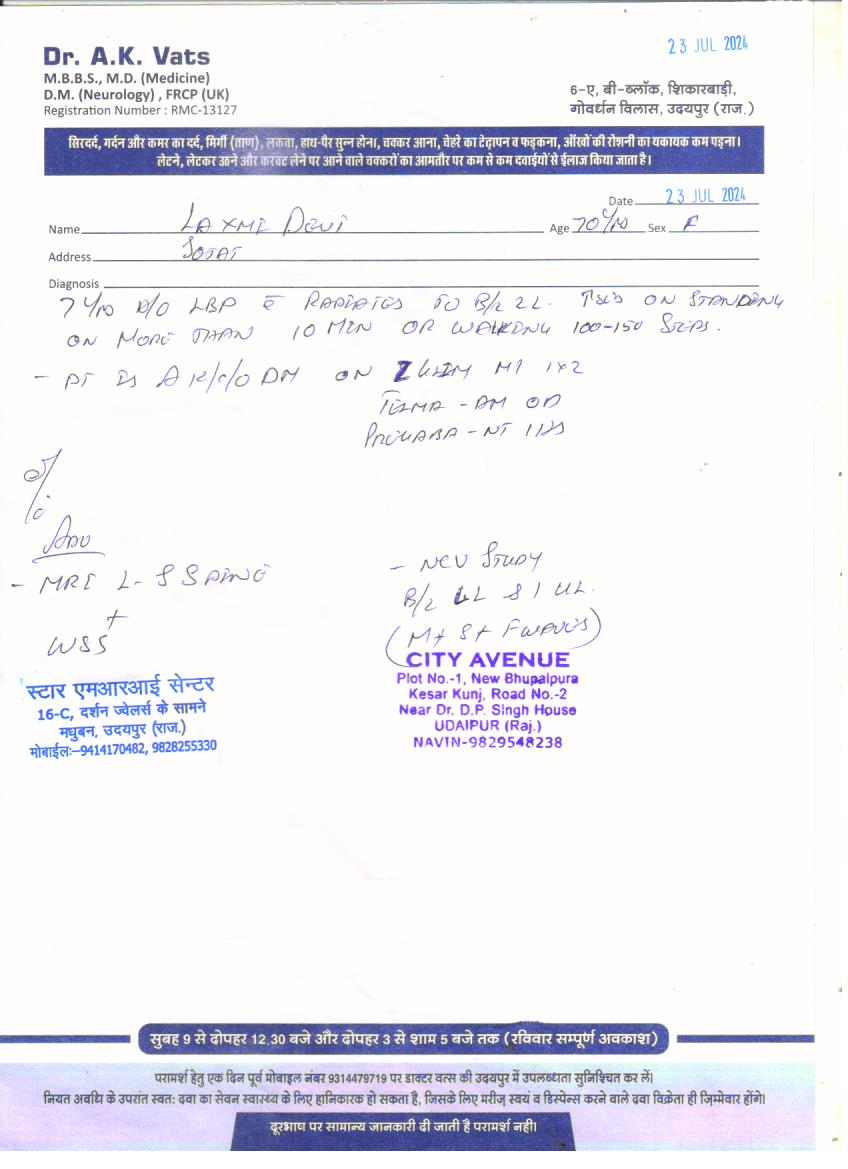 23 JUL 2024
Dr. A.K. Vats
M.B.B.S., M.D. (Medicine)
D.M. (Neurology) , FRCP (UK)
Registration Number : RMC-13127
6-ए, बी-ब्लॉक, शिकारबाड़ी,
गोवर्धन विलास, उदयपुर (राज.)
सिरदर्द, गर्दन और कमर का दर्द, मिर्गी (ताण), लकवा, हाथ-पैर सुन्न होना, चक्कर आना, चेहरे का टेढ़ापन व फड़कना, आँखों की रोशनी का यकायक कम पड़ना।
लेटने, लेटकर उठने और करवट लेने पर आने वाले चक्करों का आमतौर पर कम से कम दवाईयों से ईलाज किया जाता है।
Date 23 JUL 2024
Name LAXMI DEVI Age 70 Sex F
Address
Diagnosis
LBP RADIATES TO B/L LL. ON STANDING
ON MORE THAN 10 MIN OR WALKING 100-150 STEPS.
- PT IS A K/C/O DM ON M1 1x2
TELMA - AM OD
- NT
Adv
- MRI L-S SPINE
+
WSS
- NCV STUDY
B/L LL & 1 UL.
(M+ S+ F WAVES)
स्टार एमआरआई सेन्टर
16-C, दर्शन ज्वेलर्स के सामने
मधुबन, उदयपुर (राज.)
मोबाईल:–9414170482, 9828255330
CITY AVENUE
Plot No.-1, New Bhupalpura
Kesar Kunj. Road No.-2
Near Dr. D.P. Singh House
UDAIPUR (Raj.)
NAVIN-9829548238
सुबह 9 से दोपहर 12.30 बजे और दोपहर 3 से शाम 5 बजे तक (रविवार सम्पूर्ण अवकाश)
परामर्श हेतु एक दिन पूर्व मोबाइल नंबर 9314479719 पर डाक्टर वत्स की उदयपुर में उपलब्धता सुनिश्चित कर लें।
नियत अवधि के उपरांत स्वत: दवा का सेवन स्वास्थ्य के लिए हानिकारक हो सकता है, जिसके लिए मरीज़ स्वयं व डिस्पेन्स करने वाले दवा विक्रेता ही ज़िम्मेवार होंगे।
दूरभाष पर सामान्य जानकारी दी जाती है परामर्श नहीं।